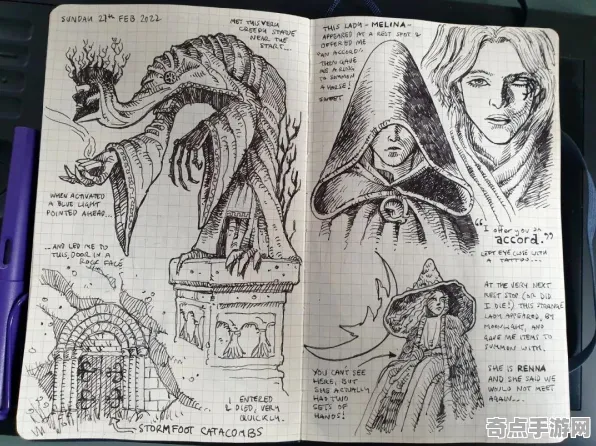 SUNDAY 27th FEB 2022
MET THIS VERY
CREEPY STATUE
NEAR THE
START...
WHEN ACTIVATED
A BLUE LIGHT
POINTED AHEAD...
...AND LED ME TO
THIS DOOR IN A
ROCK FACE
I ENTERED
& DIED, VERY
QUICKLY..
STORMFOOT CATACOMBS
THIS LADY - MELINA -
APPEARED AT A REST SPOT &
OFFERED ME
AN ACCORD.
THEN GAVE
ME A RING
TO SUMMON
A HORSE!
SWEET
"I offer you an
accord."
LEFT EYE CLOSE WITH
A TATTOO...
AT THE VERY NEXT
REST STOP (OR DID
I DIE?) THIS STRANGE
LADY APPEARED, BY
MOONLIGHT, AND
GAVE ME ITEMS TO
SUMMON WITH.
SHE IS RENNA
AND SHE SAID WE
WOULD NOT MEET
AGAIN...
YOU CAN'T SEE
HERE, BUT
SHE ACTUALLY
HAS TWO
SETS OF
HANDS!
奇点手游网